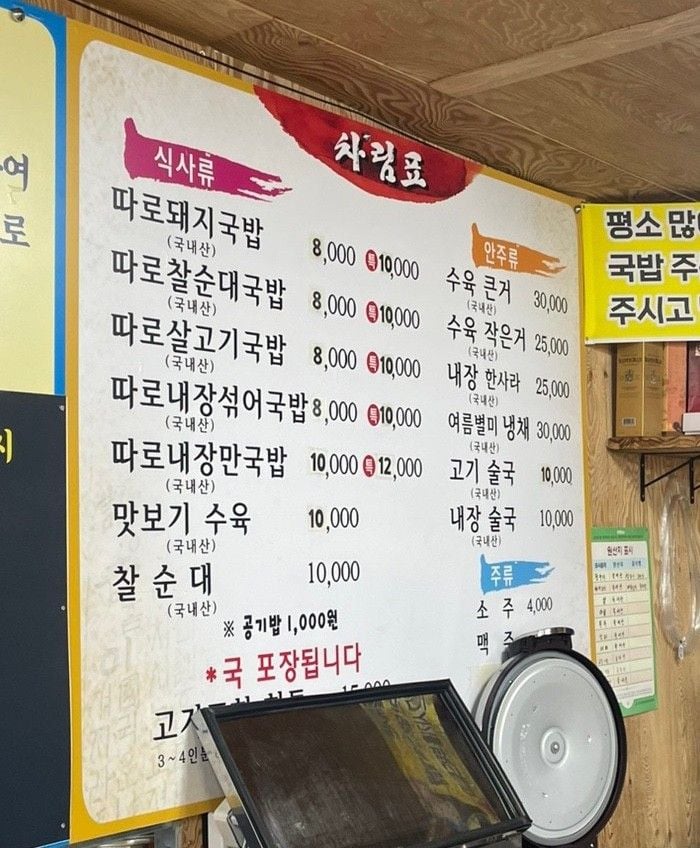 차림표
식사류
따로돼지국밥 8,000 특 10,000
(국내산)
따로찰순대국밥 8,000 특 10,000
(국내산)
따로살고기국밥 8,000 특 10,000
(국내산)
따로내장섞어국밥 8,000 특 10,000
(국내산)
따로내장만국밥 10,000 특 12,000
(국내산)
맛보기 수육 10,000
(국내산)
찰순대 10,000
(국내산)
※ 공기밥 1,000원
*국 포장됩니다
3~4인분
안주류
수육 큰거 30,000
(국내산)
수육 작은거 25,000
(국내산)
내장 한사라 25,000
(국내산)
여름별미 냉채 30,000
(국내산)
고기 술국 10,000
(국내산)
내장 술국 10,000
(국내산)
주류
소주 4,000
맥
평소
국밥 주
주시고
원산지 표시
여
로